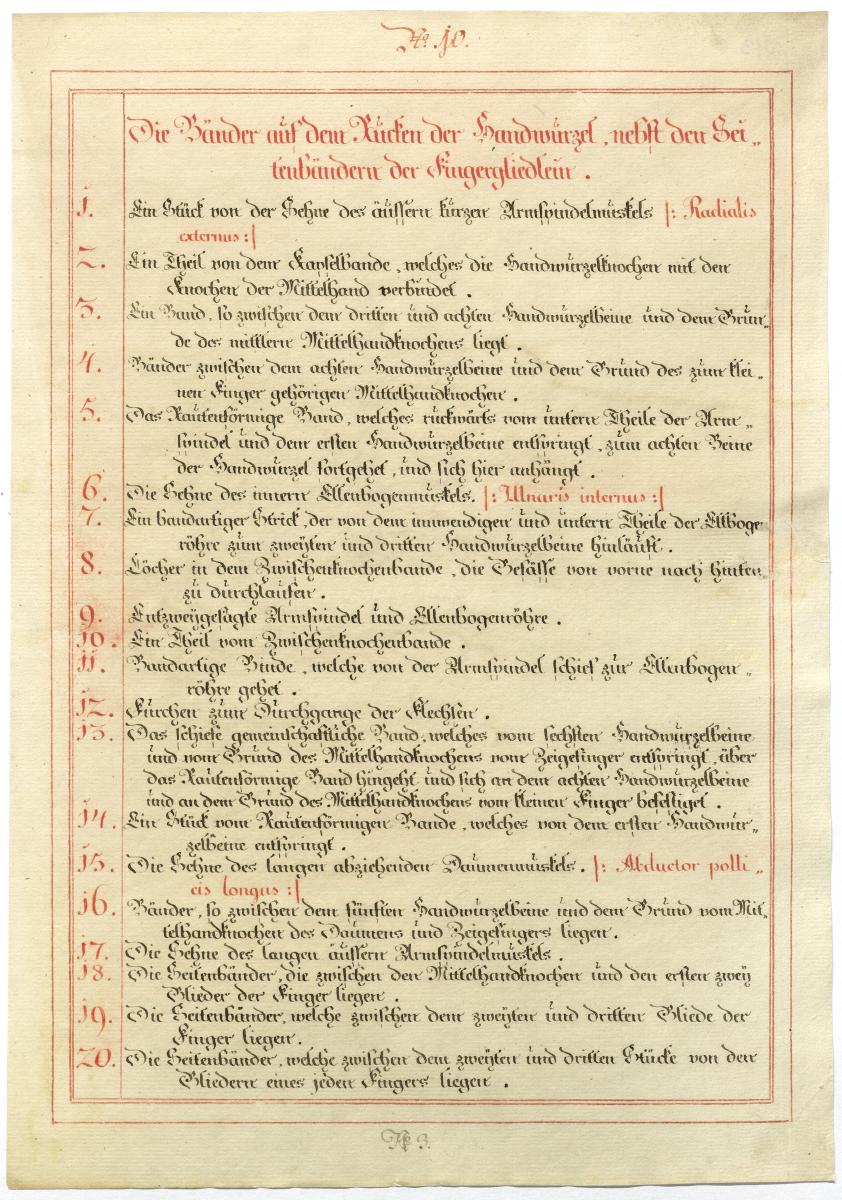 No. 10.
Die Bänder auf dem Rücken der Handwurzel, nebst den Sei„
tenbändern der Fingergliedlein.
1. Ein Stück von der Sehne des äüssern kurzen Armspindelmuskels |: Radialis
externus :|
2. Ein Theil von dem Kapselbande, welches die Handwurzelknochen mit den
Knochen der Mittelhand verbindet.
3. Ein Band, so zwischen dem dritten und achten Handwurzelbeine und dem Grun„
de des mittlern Mittelhandknochens liegt.
4. Bänder zwischen dem achten Handwurzelbeine und dem Grund des zum klei„
nen Finger gehörigen Mittelhandknochen.
5. Das Rautenförmige Band, welches rückwärts vom untern Theile der Arm„
spindel und dem ersten Handwurzelbeine entspringt, zum achten Beine
der Handwurzel fortgehet, und sich hier anhängt.
6. Die Sehne des innern Ellenbogenmuskels. |: Ulnaris internus :|
7. Ein bandartiger Strick, der von dem innwendigen und untern Theile der Ellboge
röhre zum zweyten und dritten Handwurzelbeine hinläuft.
8. Löcher in dem Zwischenknochenbande, die Gefässe von vorne nach hinten
zu durchlaufen.
9. Entzweygesägte Armspindel und Ellenbogenröhre.
10. Ein Theil vom Zwischenknochenbande.
11. Bandartige Binde, welche von der Armspindel schief zur Ellenbogen„
röhre gehet.
12. Furchen zum Durchgange der Flechsen.
13. Das schiefe gemeinschaftliche Band, welches vom sechsten Handwurzelbeine
und vom Grund des Mittelhandknochens vom Zeigefinger entspringt, über
das Rautenförmige Band hingeht und sich an dem achten Handwurzelbeine
und an dem Grund des Mittelhandknochens vom kleinen Finger befestiget.
14. Ein Stück vom Rautenförmigen Bande, welches von dem ersten Handwur„
zelbeine entspringt.
15. Die Sehne des langen abziehenden Daumenmuskels. |: Abductor polli„
cis longus :|
16. Bänder, so zwischen dem fünften Handwurzelbeine und dem Grund vom Mit„
telhandknochen des Daumens und Zeigefingers liegen.
17. Die Sehne des langen äüssern Armspindelmuskels.
18. Die Seitenbänder, die zwischen den Mittelhandknochen und den ersten zwey
Glieder der Finger liegen.
19. Die Seitenbänder, welche zwischen dem zweyten und dritten Gliede der
Finger liegen.
20. Die Seitenbänder, welche zwischen dem zweyten und dritten Stücke von den
Gliedern eines jeden Fingers liegen.